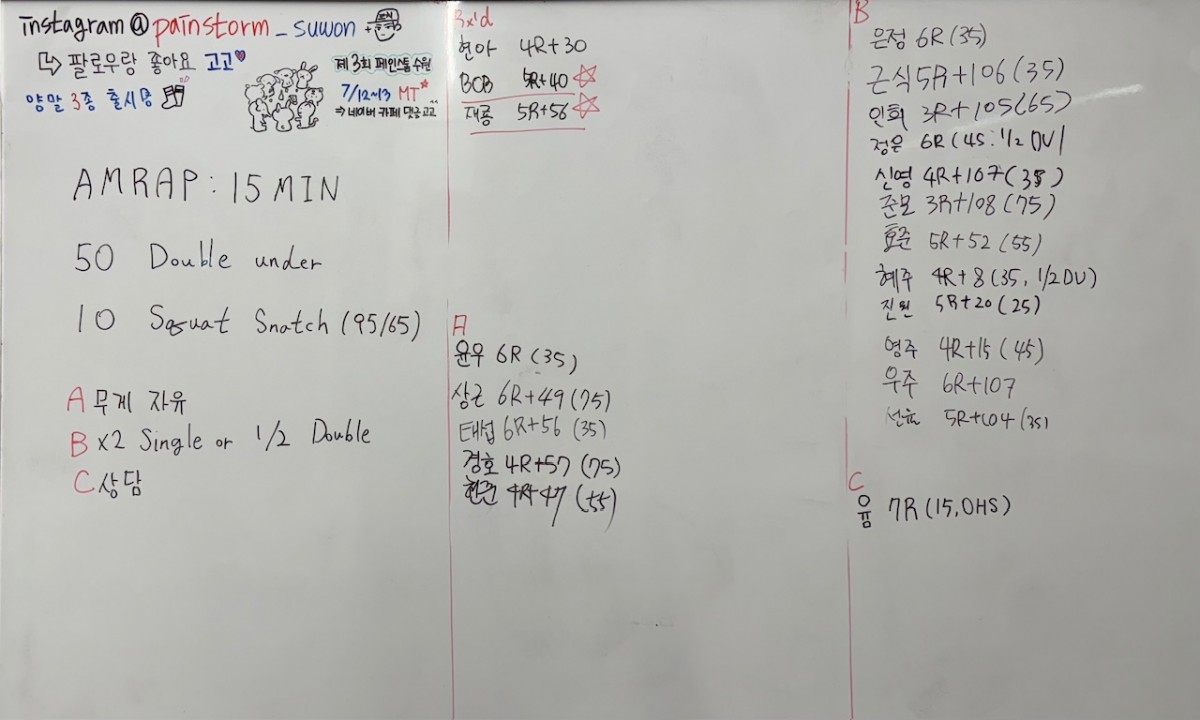 instagram@painstorm_suwon +
↳ 팔로우랑 좋아요 고고♥
양말 3종 출시중
제3회 페인스톰수원
7/12~13 MT*
⇒ 네이버 카페 댓글 고고
AMRAP : 15 MIN
50 Double under
10 Squat Snatch (95/65)
A 무게 자유
B x2 Single or 1/2 Double
C 상담
Rx'd
현아 4R+30
BOB 5R+40 ☆
재콩 5R+56 ☆
A
윤우 6R (35)
상근 6R+49 (75)
태섭 6R+56 (35)
경호 4R+57 (75)
4R+47 (55)
B
은정 6R (35)
근식 5R+106 (35)
인희 3R+105 (65)
정은 6R (45 : 1/2 DU)
신영 4R+107 (35)
준모 3R+108 (75)
효준 5R+52 (55)
혜주 4R+8 (35, 1/2DU)
진원 5R+20 (25)
영주 4R+15 (45)
우주 6R+107
5R+104 (35)
C
윰 7R (15, OHS)